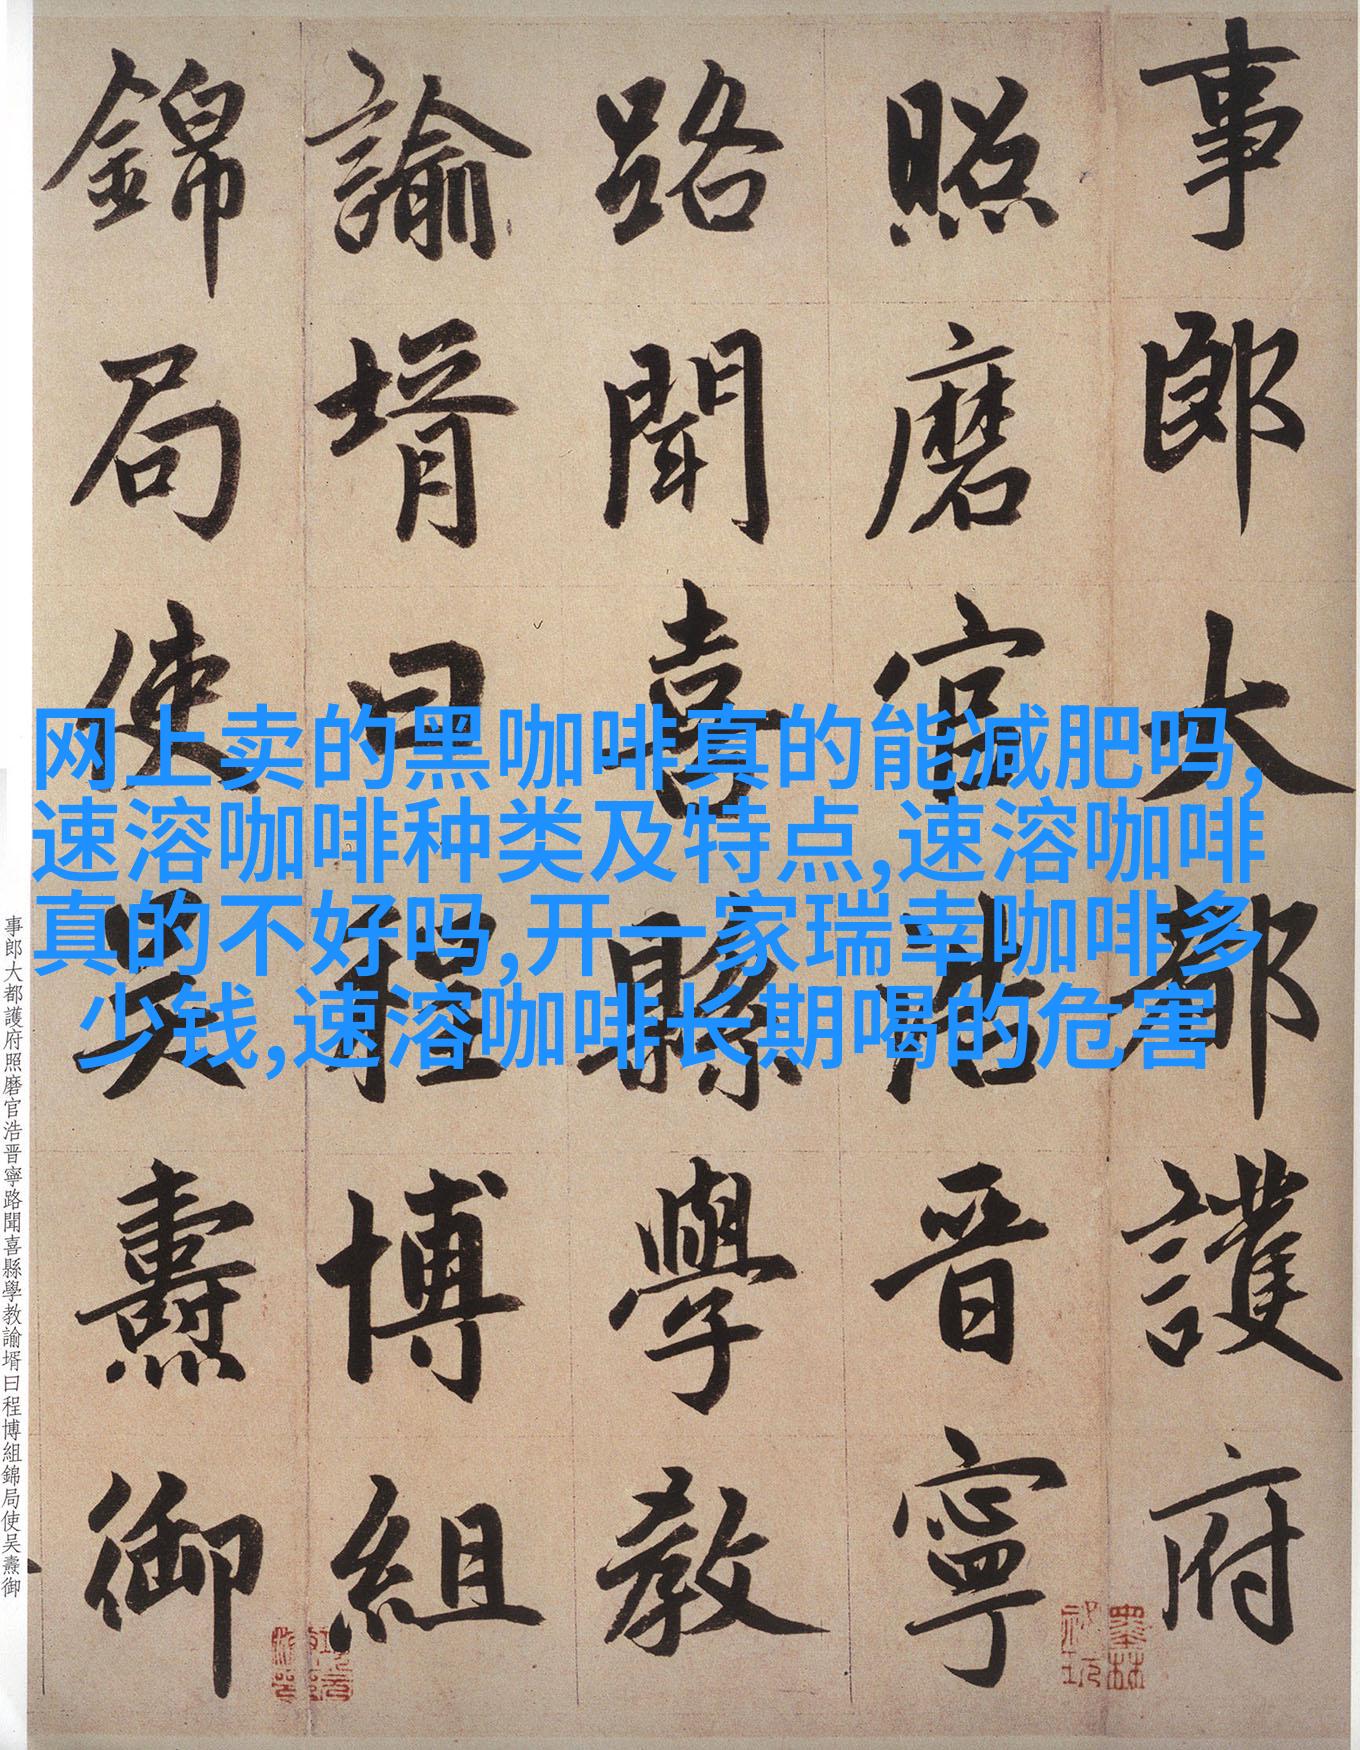 事郎大都護府
照磨官浩晉寧
路聞喜縣學教
諭壻曰程博組
錦局使吳燾御
网上卖的黑咖啡真的能减肥吗,
速溶咖啡种类及特点,速溶咖啡
真的不好吗,开一家瑞幸咖啡多
少钱,速溶咖啡长期喝的危害
事郎大都護府照磨官浩晋寧路聞喜縣學教諭壻曰程博組錦局使吴燾御
墨林
祕玩